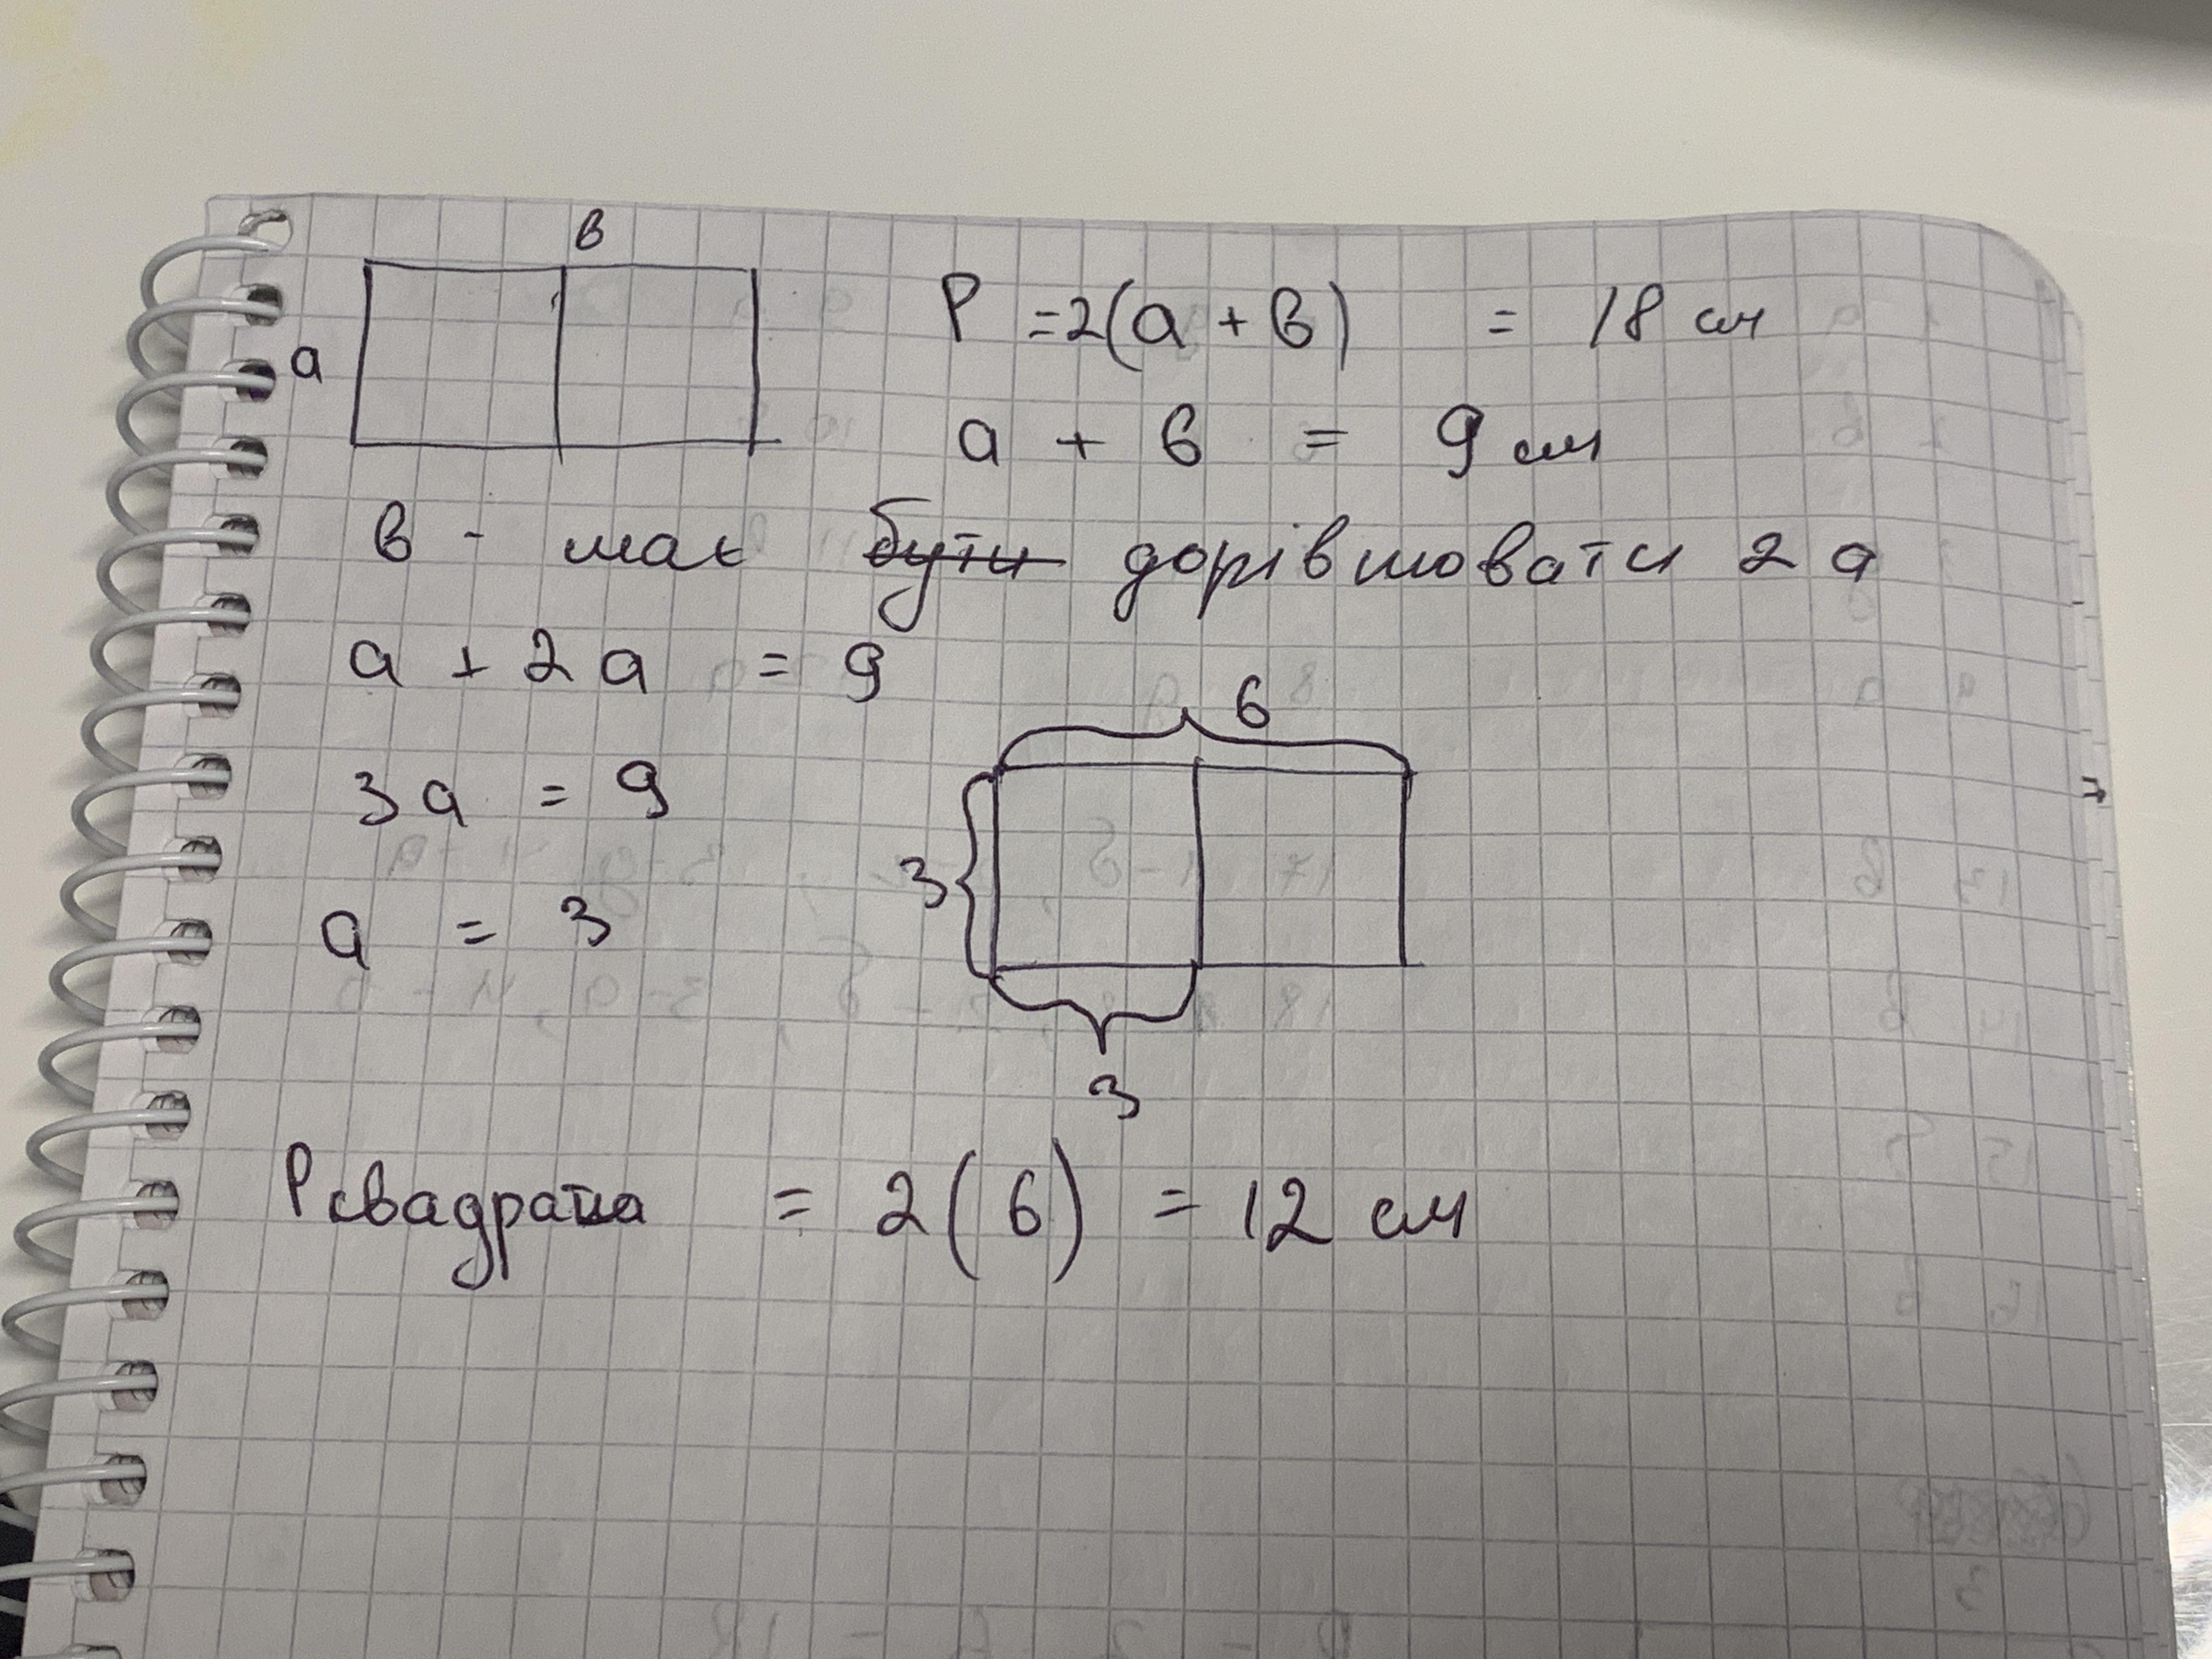 в
a
P = 2(a + в) = 18 см
a + в = 9 см
в - має бути дорівнювати 2a
a + 2a = 9
3a = 9
a = 3
6
3
3
Pквадрата = 2(6) = 12 см